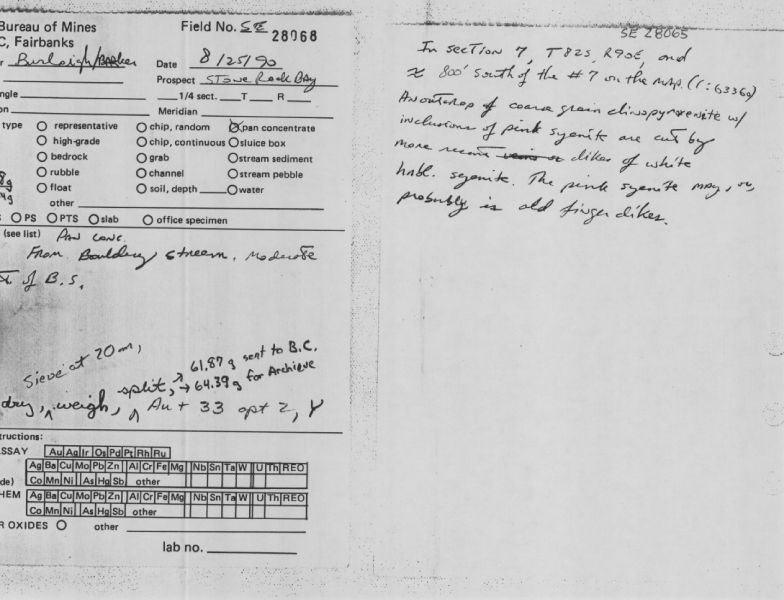 Bureau of Mines
C, Fairbanks
Field No. SE 28068
r Burleigh/Barker Date 8/25/90
Prospect Stone Rock Bay
ngle 1/4 sect. T R
on Meridian
type representative chip, random pan concentrate
high-grade chip, continuous sluice box
bedrock grab stream sediment
rubble channel stream pebble
float soil, depth water
other
PS PTS slab office specimen
(see list) Pan conc.
From Bouldery stream, moderate
of B.S.
Sieve at 20 m,
dry, weigh, split, → 61.87 g sent to B.C.
→ 64.39 g for Archieve
Au + 33 opt 2, Y
tructions:
SSAY Au Ag Ir Os Pd Pt Rh Ru
Ag Ba Cu Mo Pb Zn Al Cr Fe Mg Nb Sn Ta W U Th REO
de) Co Mn Ni As Hg Sb other
HEM Ag Ba Cu Mo Pb Zn Al Cr Fe Mg Nb Sn Ta W U Th REO
Co Mn Ni As Hg Sb other
R OXIDES other
lab no.
SE 28065
In section 7, T82S, R90E, and
≈ 800' south of the #7 on the map. (1:63360)
An outcrop of coarse grain clinopyroxenite w/
inclusions of pink syenite are cut by
more recent dikes of white
habl. syenite. The pink syenite may, or,
probably is old finger dikes.